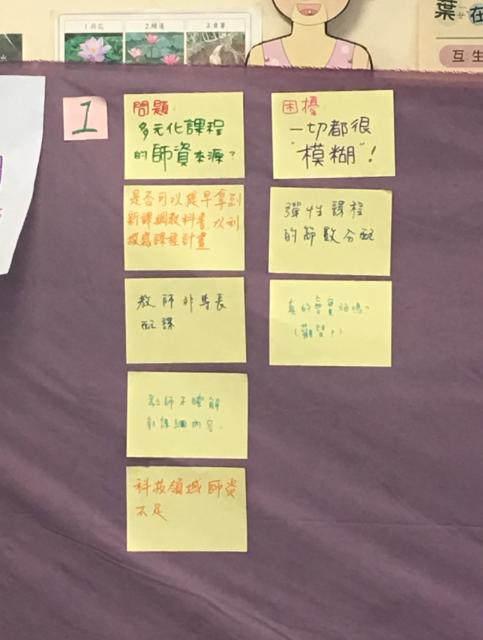 1.荷花
2.睡蓮
葉在
互生
1
問題:
多元化課程
的師資來源?
是否可以提早拿到
新課綱教科書,以利
撰寫課程計畫
教師非專長
配課
教師不瞭解
新課綱內容。
科技領域師資
不足
困擾:
一切都很
"模糊"!
彈性課程
的節數分配
真的會實施嗎?
(觀望中)